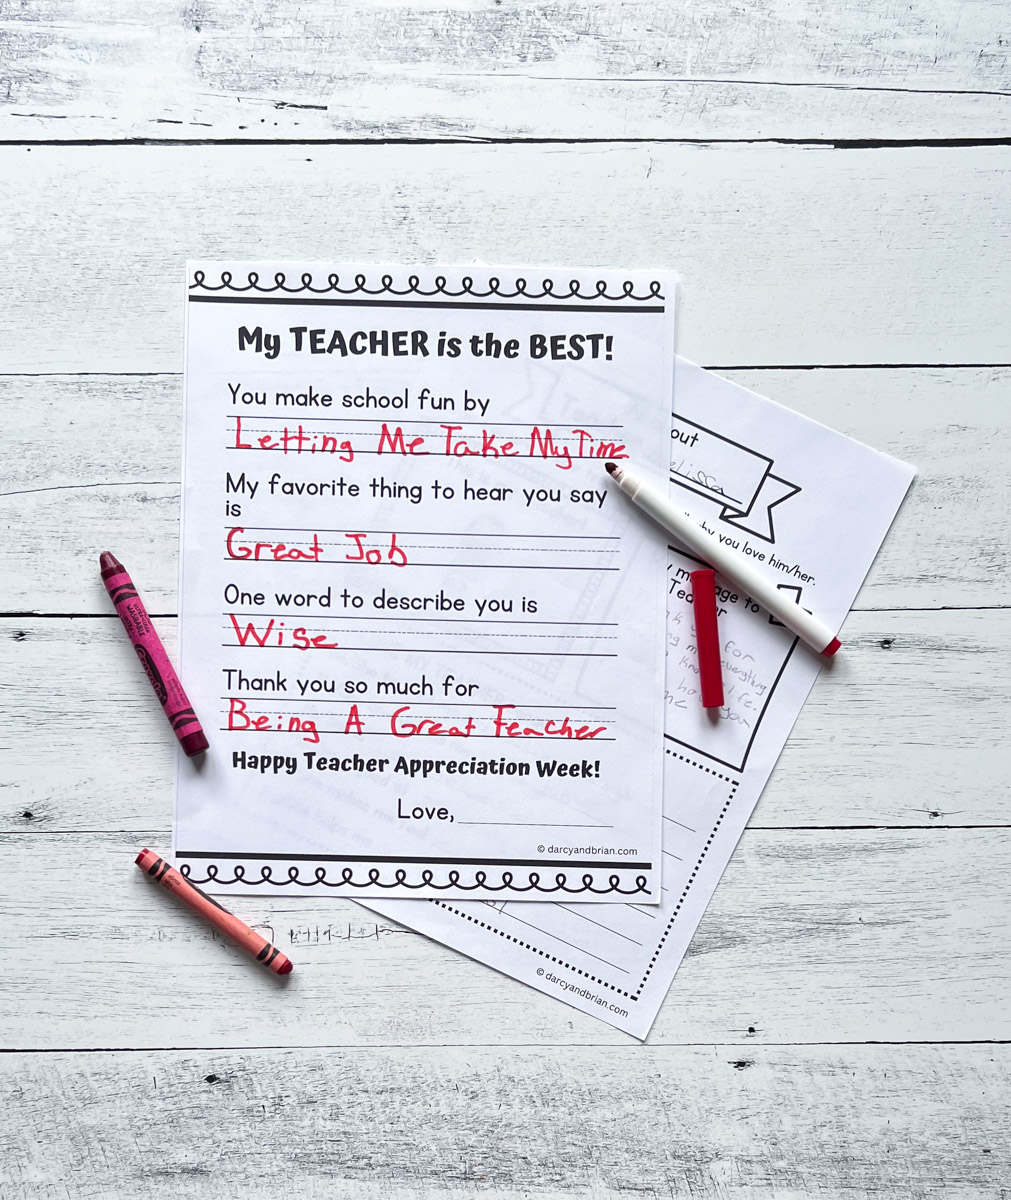 My TEACHER is the BEST!
You make school fun by
Letting Me Take My Time
My favorite thing to hear you say
is
Great Job
One word to describe you is
Wise
Thank you so much for
Being A Great Teacher
Happy Teacher Appreciation Week!
Love,
© darcyandbrian.com
out
elissa
why you love him/her.
to
for
everything
life.
you
© darcyandbrian.com
Crayola